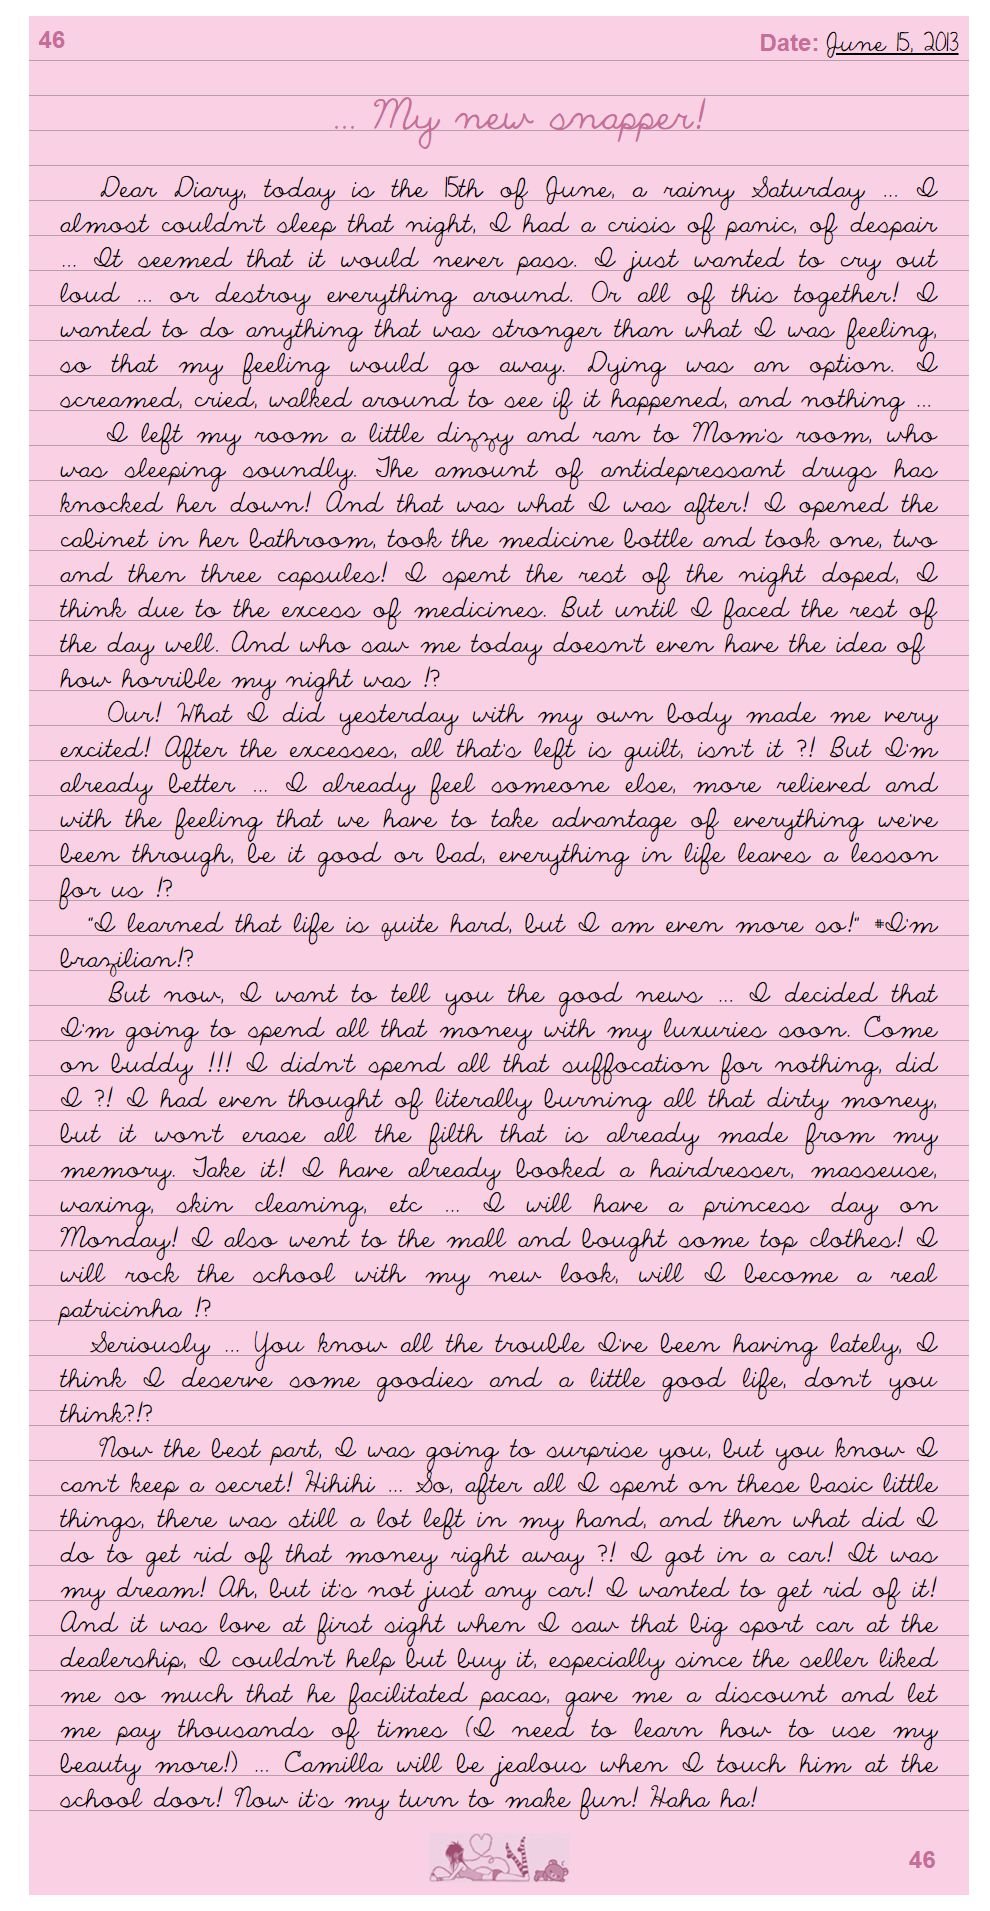 46
Date: June 15, 2013
... My new snapper!
Dear Diary, today is the 15th of June, a rainy Saturday ... I
almost couldn't sleep that night, I had a crisis of panic, of despair
... It seemed that it would never pass. I just wanted to cry out
loud ... or destroy everything around. Or all of this together! I
wanted to do anything that was stronger than what I was feeling,
so that my feeling would go away. Dying was an option. I
screamed, cried, walked around to see if it happened, and nothing ...
I left my room a little dizzy and ran to Mom's room, who
was sleeping soundly. The amount of antidepressant drugs has
knocked her down! And that was what I was after! I opened the
cabinet in her bathroom, took the medicine bottle and took one, two
and then three capsules! I spent the rest of the night doped, I
think due to the excess of medicines. But until I faced the rest of
the day well. And who saw me today doesn't even have the idea of
how horrible my night was !?
Our! What I did yesterday with my own body made me very
excited! After the excesses, all that's left is guilt, isn't it ?! But I'm
already better ... I already feel someone else, more relieved and
with the feeling that we have to take advantage of everything we've
been through, be it good or bad, everything in life leaves a lesson
for us !?
"I learned that life is quite hard, but I am even more so!" #I'm
brazilian!?
But now, I want to tell you the good news ... I decided that
I'm going to spend all that money with my luxuries soon. Come
on buddy !!! I didn't spend all that suffocation for nothing, did
I ?! I had even thought of literally burning all that dirty money,
but it won't erase all the filth that is already made from my
memory. Take it! I have already booked a hairdresser, masseuse,
waxing, skin cleaning, etc ... I will have a princess day on
Monday! I also went to the mall and bought some top clothes! I
will rock the school with my new look, will I become a real
patricinha !?
Seriously ... You know all the trouble I've been having lately, I
think I deserve some goodies and a little good life, don't you
think?!?
Now the best part, I was going to surprise you, but you know I
can't keep a secret! Hihihi ... So, after all I spent on these basic little
things, there was still a lot left in my hand, and then what did I
do to get rid of that money right away ?! I got in a car! It was
my dream! Ah, but it's not just any car! I wanted to get rid of it!
And it was love at first sight when I saw that big sport car at the
dealership, I couldn't help but buy it, especially since the seller liked
me so much that he facilitated pacas, gave me a discount and let
me pay thousands of times (I need to learn how to use my
beauty more!) ... Camilla will be jealous when I touch him at the
school door! Now it's my turn to make fun! Haha ha!
46